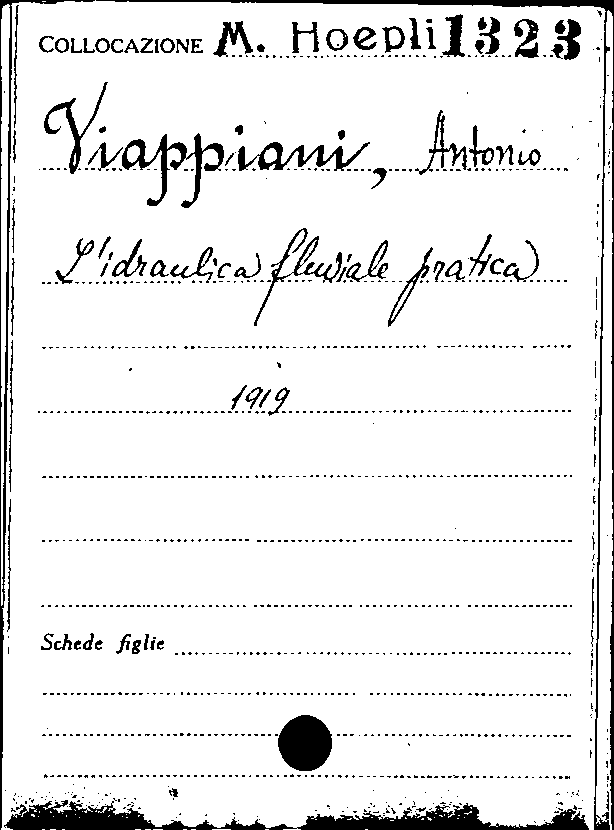 COLLOCAZIONE M. Hoepli 1323
Viappiani, Antonio
L'idraulica fluviale pratica
1919
Schede figlie